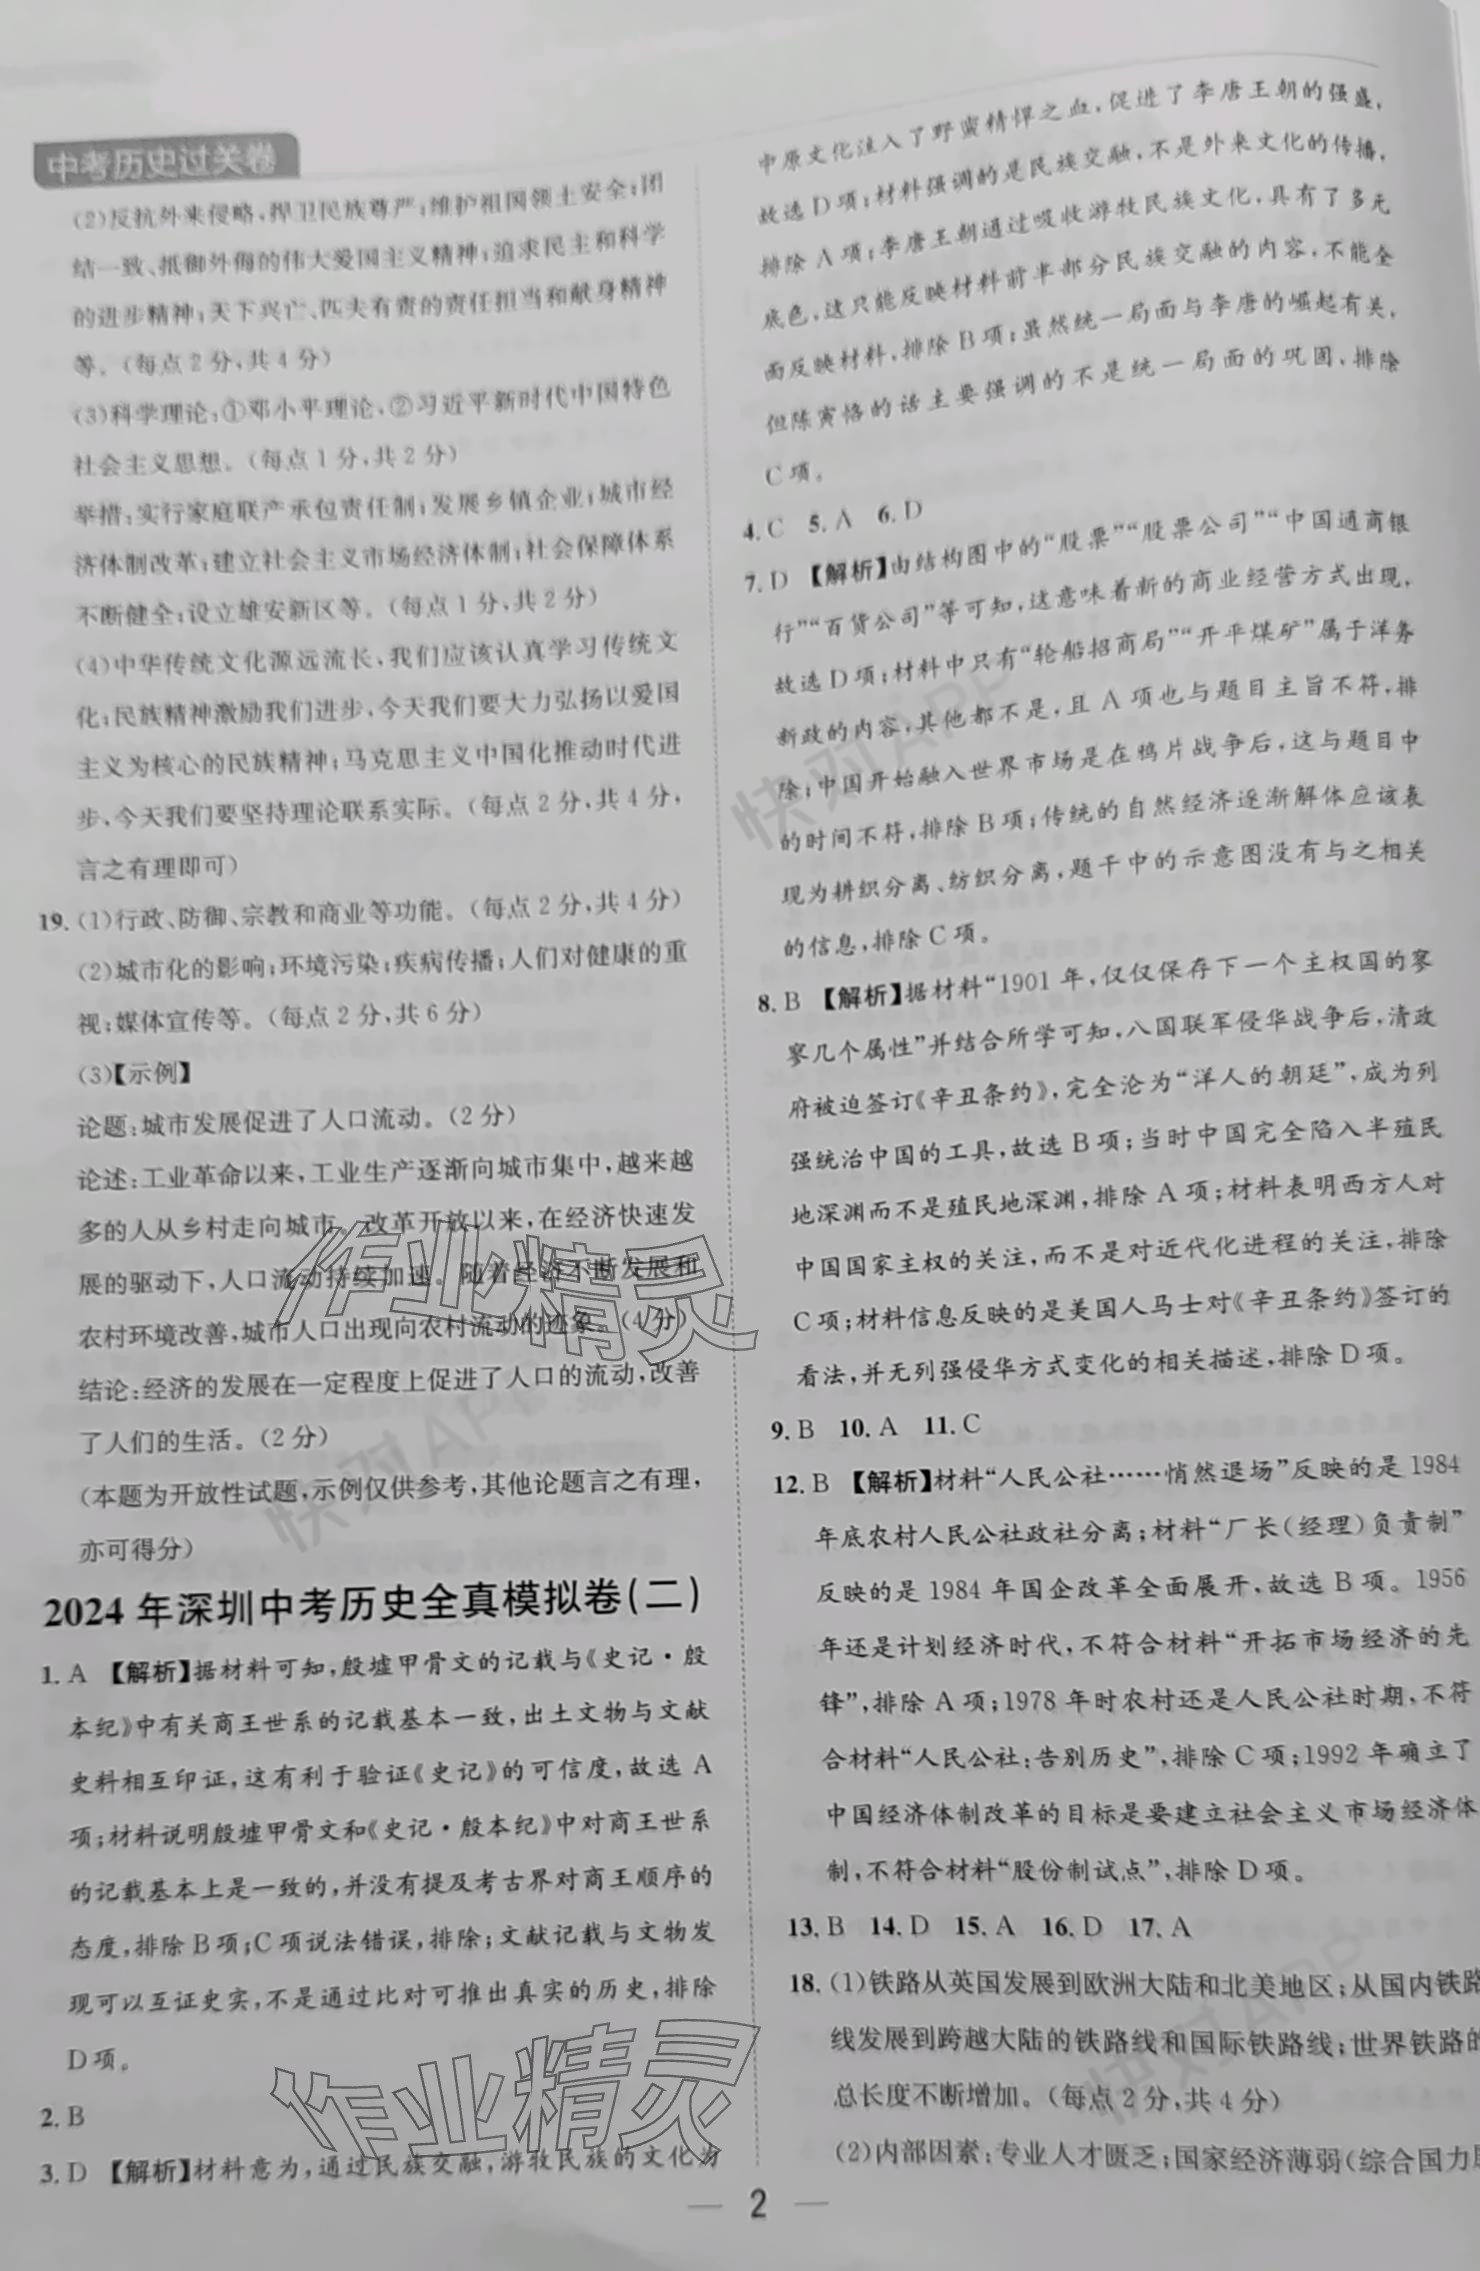 中考历史过关卷
(2)反抗外来侵略,捍卫民族尊严;维护祖国领土安全;团
结一致、抵御外侮的伟大爱国主义精神;追求民主和科学
的进步精神;天下兴亡、匹夫有责的责任担当和献身精神
等。(每点2分,共4分)
(3)科学理论:①邓小平理论,②习近平新时代中国特色
社会主义思想。(每点1分,共2分)
举措:实行家庭联产承包责任制;发展乡镇企业;城市经
济体制改革;建立社会主义市场经济体制;社会保障体系
不断健全;设立雄安新区等。(每点1分,共2分)
(4)中华传统文化源远流长,我们应该认真学习传统文
化;民族精神激励我们进步,今天我们要大力弘扬以爱国
主义为核心的民族精神;马克思主义中国化推动时代进
步,今天我们要坚持理论联系实际。(每点2分,共4分,
言之有理即可)
19. (1)行政、防御、宗教和商业等功能。(每点2分,共4分)
(2)城市化的影响;环境污染;疾病传播;人们对健康的重
视;媒体宣传等。(每点2分,共6分)
(3)【示例】
论题:城市发展促进了人口流动。(2分)
论述:工业革命以来,工业生产逐渐向城市集中,越来越
多的人从乡村走向城市。改革开放以来,在经济快速发
展的驱动下,人口流动持续加速。随着经济不断发展和
农村环境改善,城市人口出现向农村流动的迹象。(4分)
结论:经济的发展在一定程度上促进了人口的流动,改善
了人们的生活。(2分)
(本题为开放性试题,示例仅供参考,其他论题言之有理,
亦可得分)
2024年深圳中考历史全真模拟卷(二)
1. A 【解析】据材料可知,殷墟甲骨文的记载与《史记·殷
本纪》中有关商王世系的记载基本一致,出土文物与文献
史料相互印证,这有利于验证《史记》的可信度,故选 A
项;材料说明殷墟甲骨文和《史记·殷本纪》中对商王世系
的记载基本上是一致的,并没有提及考古界对商王顺序的
态度,排除B项;C项说法错误,排除;文献记载与文物发
现可以互证史实,不是通过比对可推出真实的历史,排除
D项。
2. B
3. D 【解析】材料意为,通过民族交融,游牧民族的文化为
中原文化注入了野蛮精悍之血,促进了李唐王朝的强盛,
故选D项;材料强调的是民族交融,不是外来文化的传播,
排除A项;李唐王朝通过吸收游牧民族文化,具有了多元
底色,这只能反映材料前半部分民族交融的内容,不能全
面反映材料,排除B项;虽然统一局面与李唐的崛起有关,
但陈寅恪的话主要强调的不是统一局面的巩固,排除
C项。
4. C 5. A 6. D
7. D 【解析】由结构图中的“股票”“股票公司”“中国通商银
行”“百货公司”等可知,这意味着新的商业经营方式出现,
故选D项;材料中只有“轮船招商局”“开平煤矿”属于洋务
新政的内容,其他都不是,且A项也与题目主旨不符,排
除;中国开始融入世界市场是在鸦片战争后,这与题目中
的时间不符,排除B项;传统的自然经济逐渐解体应该表
现为耕织分离、纺织分离,题干中的示意图没有与之相关
的信息,排除C项。
8. B 【解析】据材料“1901年,仅仅保存下一个主权国的寥
寥几个属性”并结合所学可知,八国联军侵华战争后,清政
府被迫签订《辛丑条约》,完全沦为“洋人的朝廷”,成为列
强统治中国的工具,故选B项;当时中国完全陷入半殖民
地深渊而不是殖民地深渊,排除A项;材料表明西方人对
中国国家主权的关注,而不是对近代化进程的关注,排除
C项;材料信息反映的是美国人马士对《辛丑条约》签订的
看法,并无列强侵华方式变化的相关描述,排除D项。
9. B 10. A 11. C
12. B 【解析】材料“人民公社……悄然退场”反映的是1984
年底农村人民公社政社分离;材料“厂长(经理)负责制”
反映的是1984年国企改革全面展开,故选B项。1956
年还是计划经济时代,不符合材料“开拓市场经济的先
锋”,排除A项;1978年时农村还是人民公社时期,不符
合材料“人民公社:告别历史”,排除C项;1992年确立了
中国经济体制改革的目标是要建立社会主义市场经济体
制,不符合材料“股份制试点”,排除D项。
13. B 14. D 15. A 16. D 17. A
18. (1)铁路从英国发展到欧洲大陆和北美地区;从国内铁路
线发展到跨越大陆的铁路线和国际铁路线;世界铁路的
总长度不断增加。(每点2分,共4分)
(2)内部因素:专业人才匮乏;国家经济薄弱(综合国力
— 2 —
作业精灵
作业精灵
快对APP
快对APP
快对APP